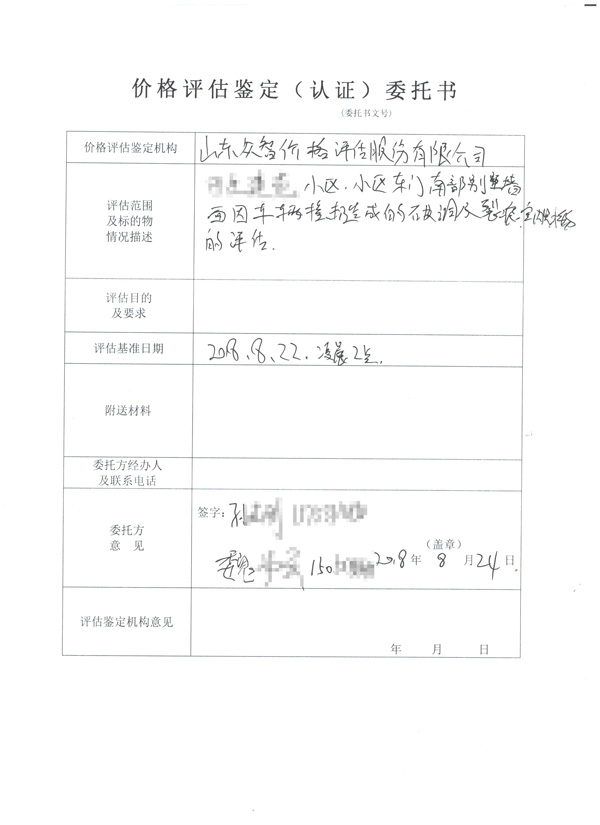 价格评估鉴定（认证）委托书
（委托书文号）
价格评估鉴定机构 山东众智价格评估股份有限公司
评估范围
及标的物
情况描述
小区.小区东门南部别墅墙
面因车辆撞损造成的
裂痕
的评估.
评估目的
及要求
评估基准日期 2018.8.22.凌晨2点.
附送材料
委托方经办人
及联系电话
委托方
意见
签字：孙
（盖章）
150 2018年8月24日
评估鉴定机构意见
年 月 日